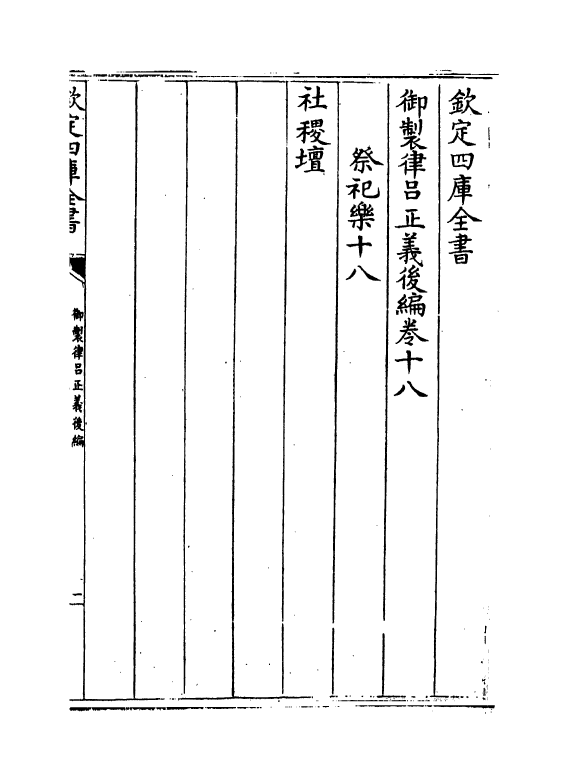 欽定四庫全書
御製律呂正義後編卷十八
祭祀樂十八
社稷壇
欽定四庫全書
御製律呂正義後編
二